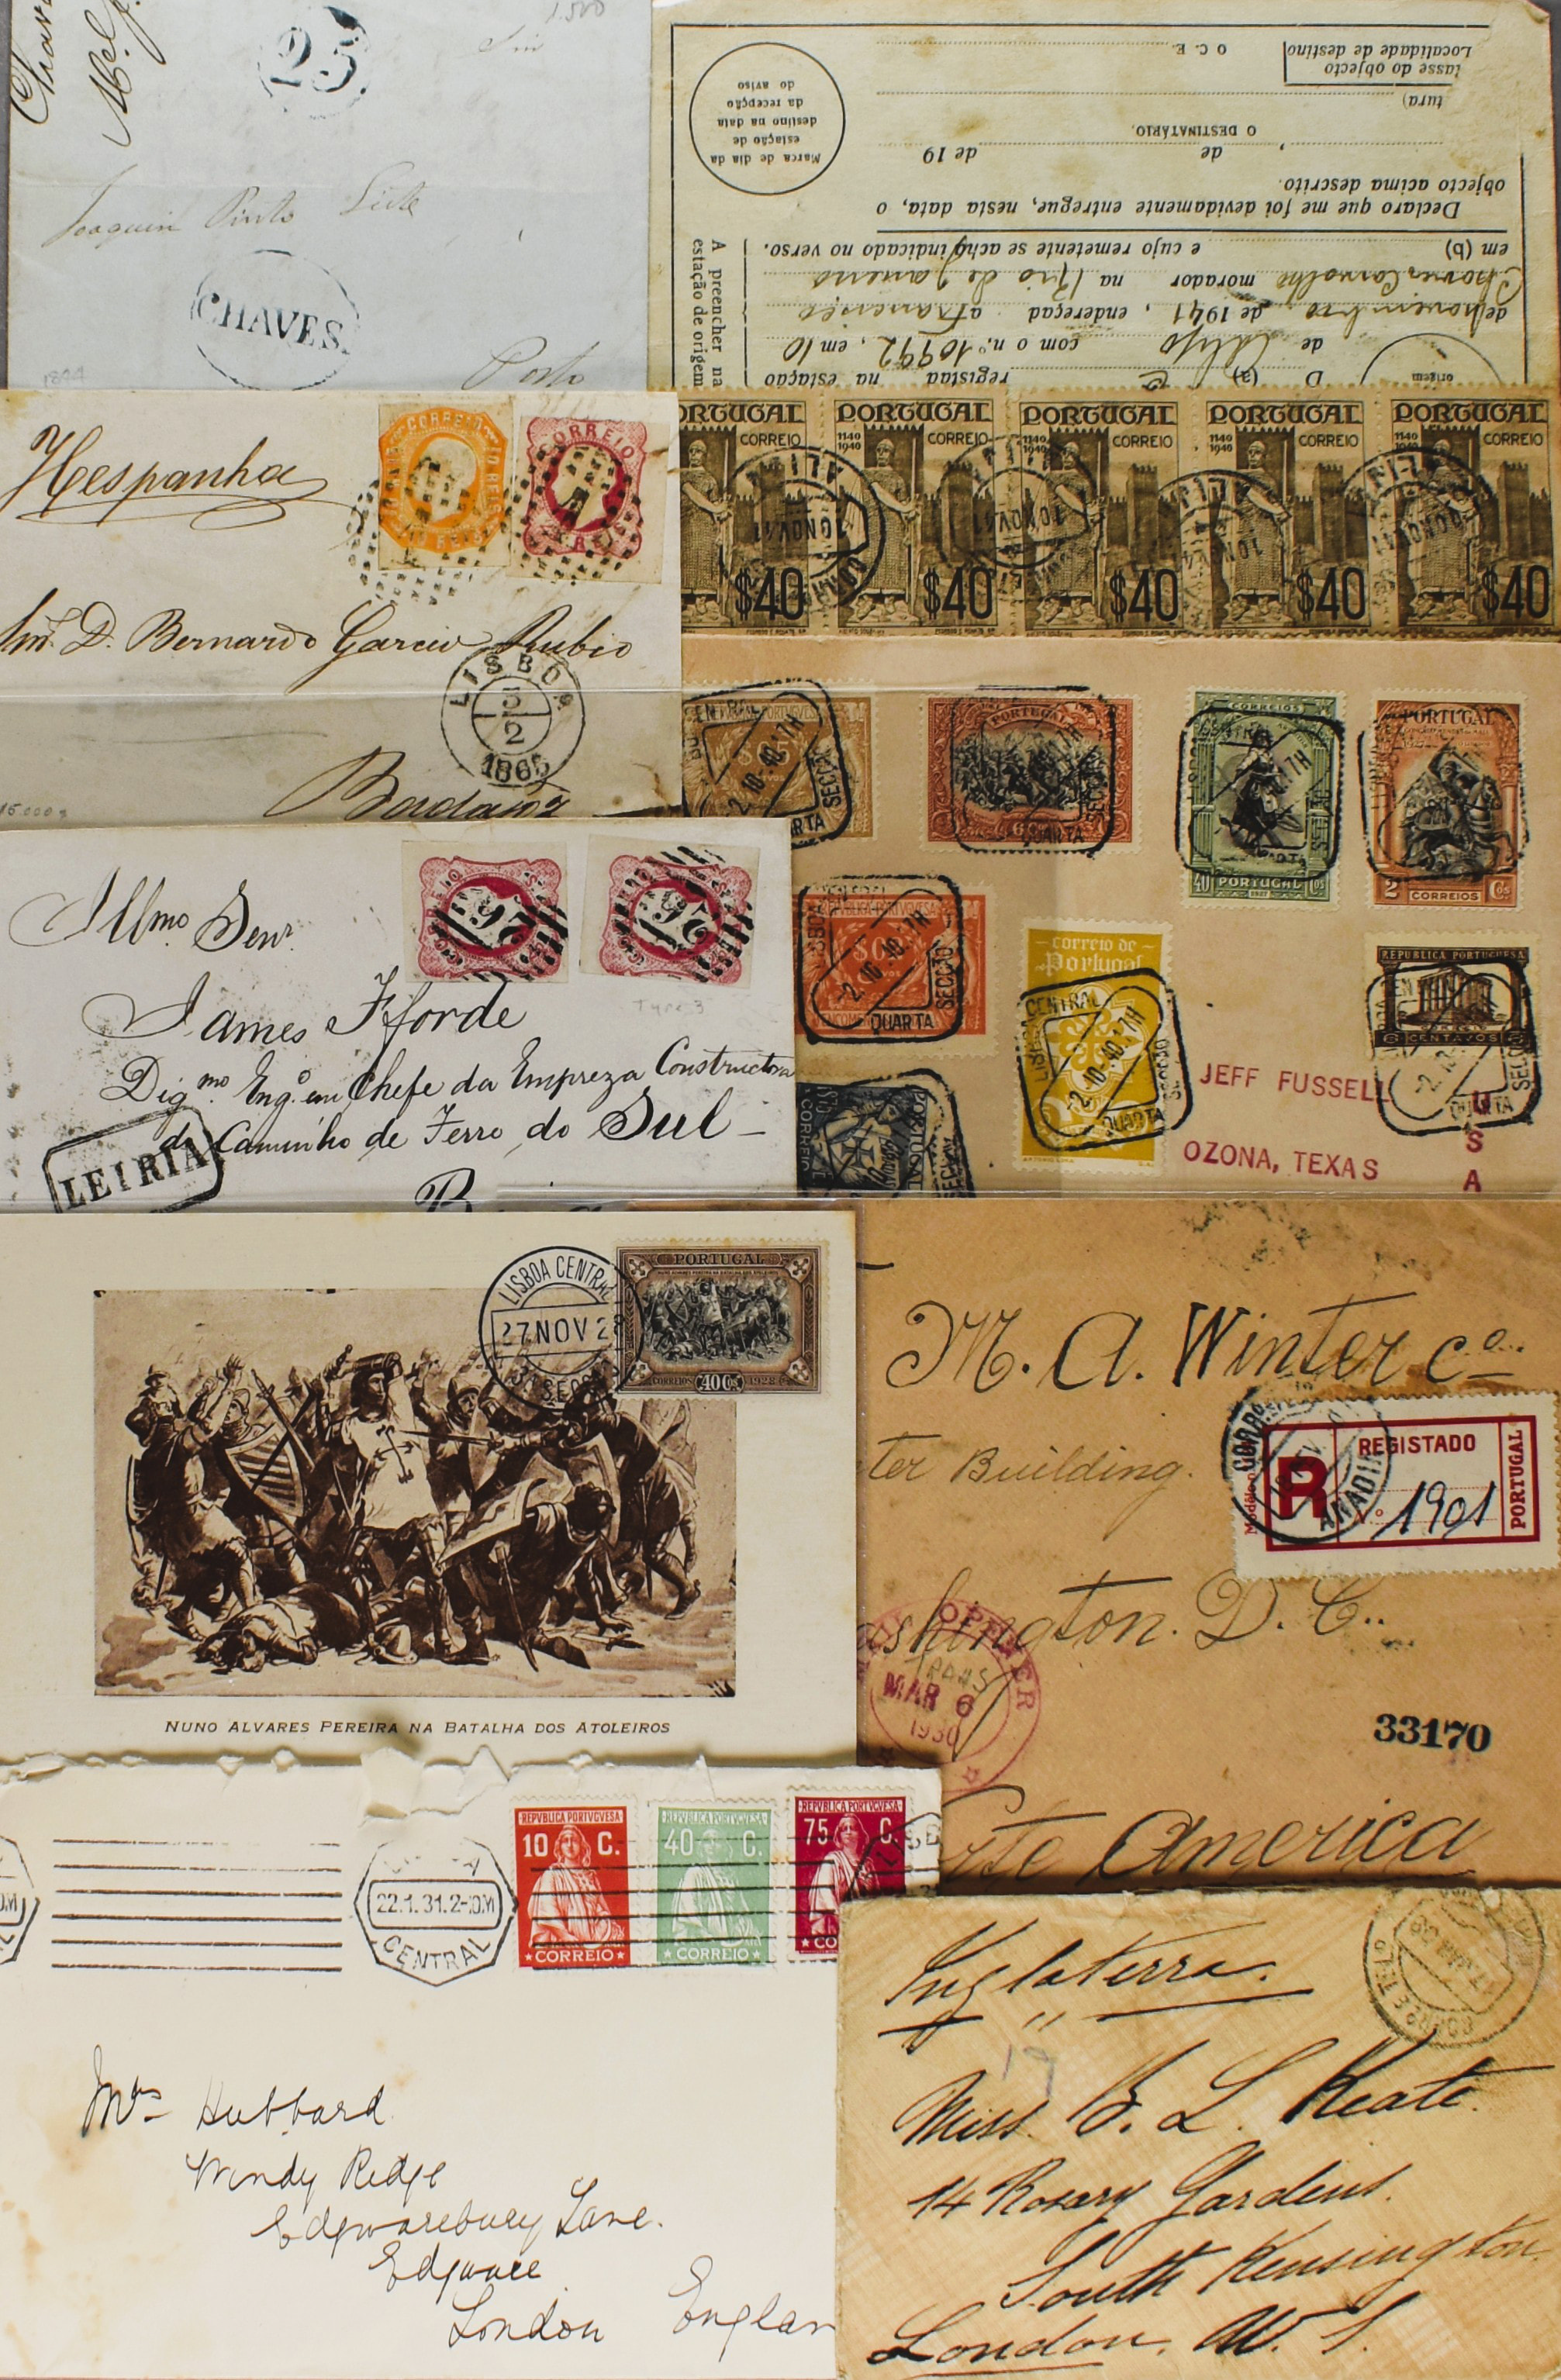 23
Joaquim Pinto Leite
CHAVES.
Porto
Classe do objecto
Localidade de destino
O C. E.
tura)
O DESTINATÁRIO,
, de de 19
Marca de dia da
estação de
destino na data
da recepção
do aviso
Declaro que me foi devidamente entregue, nesta data, o
objecto acima descrito.
A preencher na
estação de origem
D (a) registada na estação
de com o n.º 10992, em 10
de novembro de 1941, endereçad a Francisco
Chaves Carvalho morador na Rio de Janeiro
em (b) e cujo remetente se acha indicado no verso.
origem
Hespanha
CORREIO
CORREIO
D. Bernardo Garcia Rubio
LISBOA
5
2
1865
PORTUGAL
CORREIO
1140
1940
$40
10 NOV 41
PORTUGAL
CORREIO
1140
1940
$40
PORTUGAL
CORREIO
1140
1940
$40
PORTUGAL
CORREIO
1140
1940
$40
PORTUGAL
CORREIO
1140
1940
$40
Illmo. Senr.
James Fforde
Digmo. Engo. em Chefe da Empreza Constructora
do Caminho de Ferro do Sul
LEIRIA
Type 3
CENTRAL
-2.10.40.17H
SECÇÃO
QUARTA
PORTUGAL
CORREIOS
40 PORTUGAL Cos
PORTUGAL
2 CORREIOS Cos
correio de
Portugal
LISBOA CENTRAL
-2.10.40.17H
QUARTA
SECÇÃO
REPUBLICA PORTUGUESA
CENTAVOS
JEFF FUSSELL
OZONA, TEXAS
U
S
A
LISBOA CENTRAL
27 NOV 28
PORTUGAL
CORREIOS 40 Cs 1928
NUNO ALVARES PEREIRA NA BATALHA DOS ATOLEIROS
M. A. Winter Co.
ter Building.
REGISTADO
R
N.º 1901
PORTUGAL
shington. D. C..
MAR 6
1930
33170
te America
22.1.31.2-
CENTRAL
REPVBLICA PORTVGVESA
10 C.
CORREIO
REPVBLICA PORTVGVESA
40 C.
CORREIO
REPVBLICA PORTVGVESA
75 C.
CO
Mrs Hubbard
Windy Ridge
Edgwarebury Lane.
Edgware
London Englan
Inglaterra.
Miss. B. L. Keate.
14 Rosary Gardens.
South Kensington.
London. W. S.